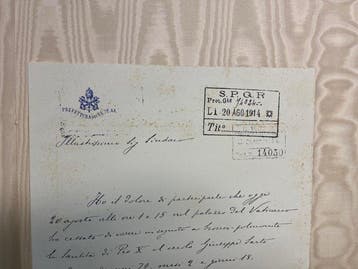 S.P.Q.R
Prot. Gle
Lì 20 AGO 1914
Tit.o
14050
Illustrissimo Sig. Sindaco
Ho il dolore di parteciparle che oggi
20 agosto alle ore 1 e 15 nel palazzo del Vaticano
ha cessato di vivere in seguito a
la Santità di Pio X al secolo Giuseppe Sarto
anni 79, mesi 2 e giorni 18.